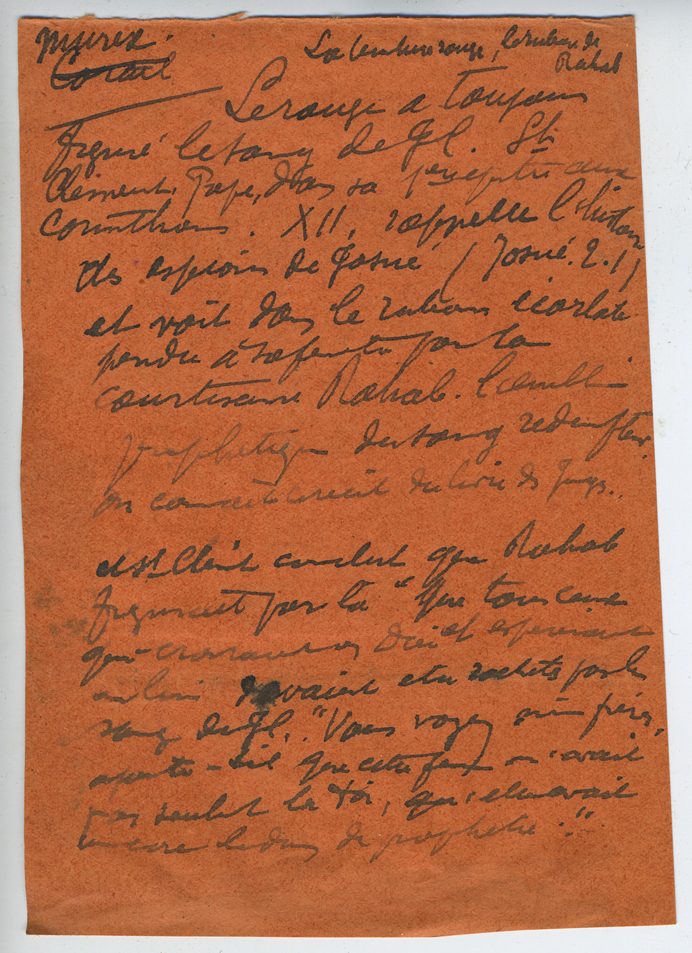 Murex.
Corail
La teinture rouge, le ruban de
Rahab
Le rouge a toujours
figuré le sang de JC. St
Clément, Pape, dans sa 1ere epitre aux
corinthiens. XII, rappelle l'histoire
des espions de Josué (Josué. 2. 1)
et voit dans le ruban écarlate
pendu à sa fenetre par la
courtisane Rahab. l'embleme
prophetique du sang redempteur.
on connait le recit du livre de
et st Clément conclut que Rahab
figurait par là "que tous ceux
qui croiraient en Dieu et espereraient
en lui devaient etre rachetés par le
sang de JC. "Vous voyez mes frères,
ajoute-t-il que cette femme n'avait
pas seulet la foi, qu'elle avait
encore le don de prophetie."